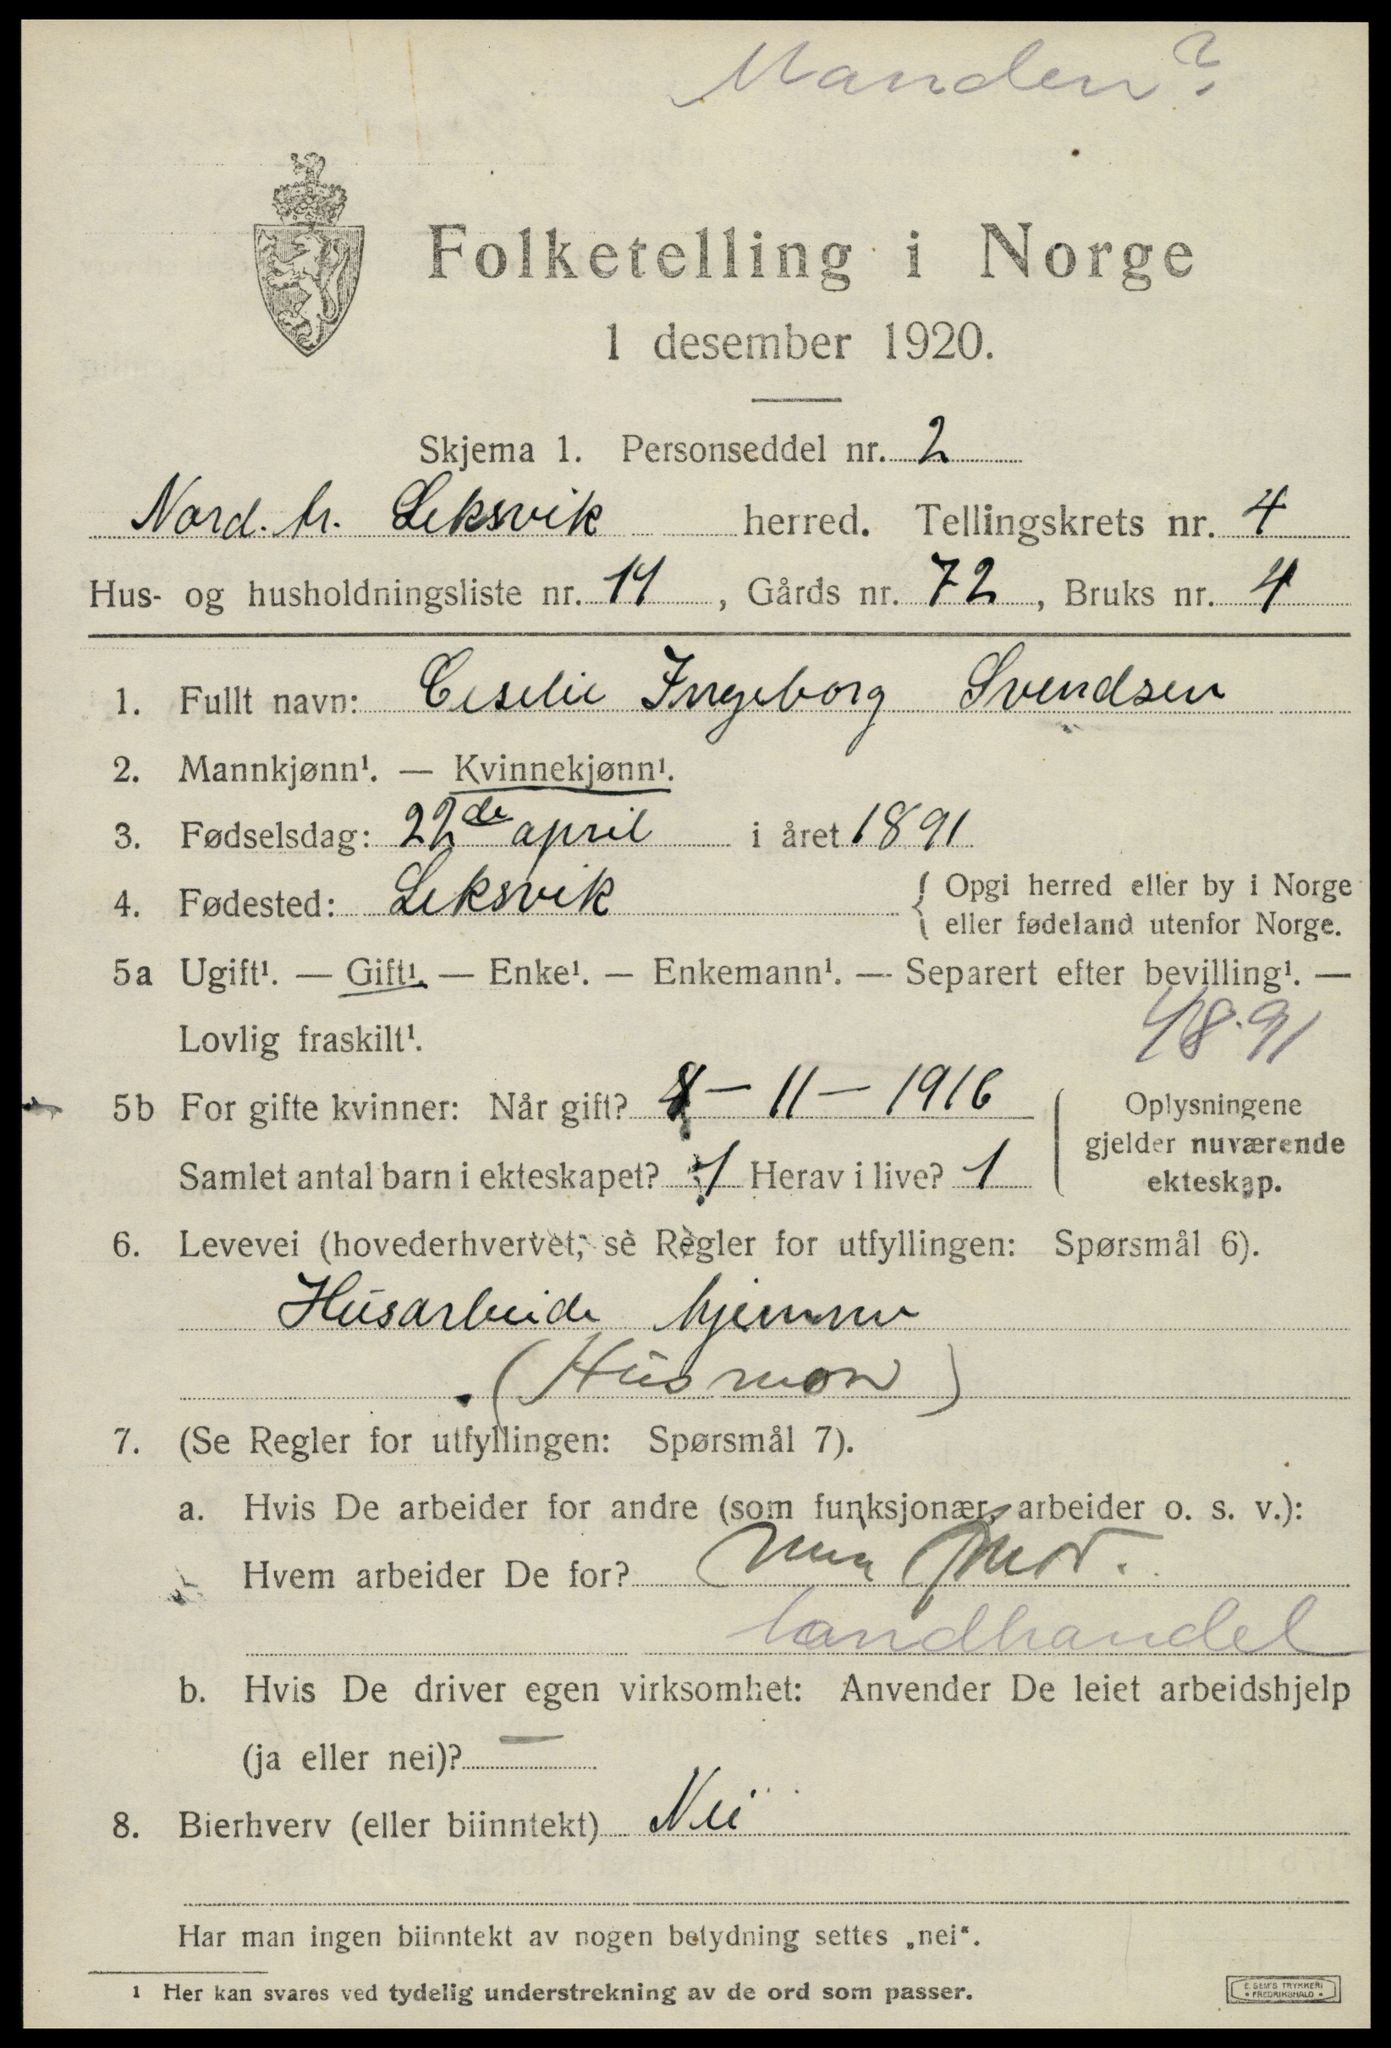 Manden?
Folketelling i Norge
1 desember 1920.
Skjema 1. Personseddel nr. 2
Nord. tr. Leksvik herred. Tellingskrets nr. 4
Hus- og husholdningsliste nr. 14, Gårds nr. 72, Bruks nr. 4
1. Fullt navn: Ceselie Ingeborg Svendsen
2. Mannkjønn¹. — Kvinnekjønn¹.
3. Fødselsdag: 22de april i året 1891
4. Fødested: Leksvik { Opgi herred eller by i Norge
eller fødeland utenfor Norge.
5a Ugift¹. — Gift¹. — Enke¹. — Enkemann¹. — Separert efter bevilling¹. —
Lovlig fraskilt¹.
48.91
5b For gifte kvinner: Når gift? – 11 – 1916
Samlet antal barn i ekteskapet? 1 Herav i live? 1
Oplysningene
gjelder nuværende
ekteskap.
6. Levevei (hovederhvervet, se Regler for utfyllingen: Spørsmål 6).
Husarbeide hjemme
(Husmor)
7. (Se Regler for utfyllingen: Spørsmål 7).
a. Hvis De arbeider for andre (som funksjonær, arbeider o. s. v.):
Hvem arbeider De for? min
landhandel
b. Hvis De driver egen virksomhet: Anvender De leiet arbeidshjelp
(ja eller nei)? —
8. Bierhverv (eller biinntekt) Nei
Har man ingen biinntekt av nogen betydning settes „nei“.
1 Her kan svares ved tydelig understrekning av de ord som passer.
E. SEM'S TRYKKERI
• FREDRIKSHALD •